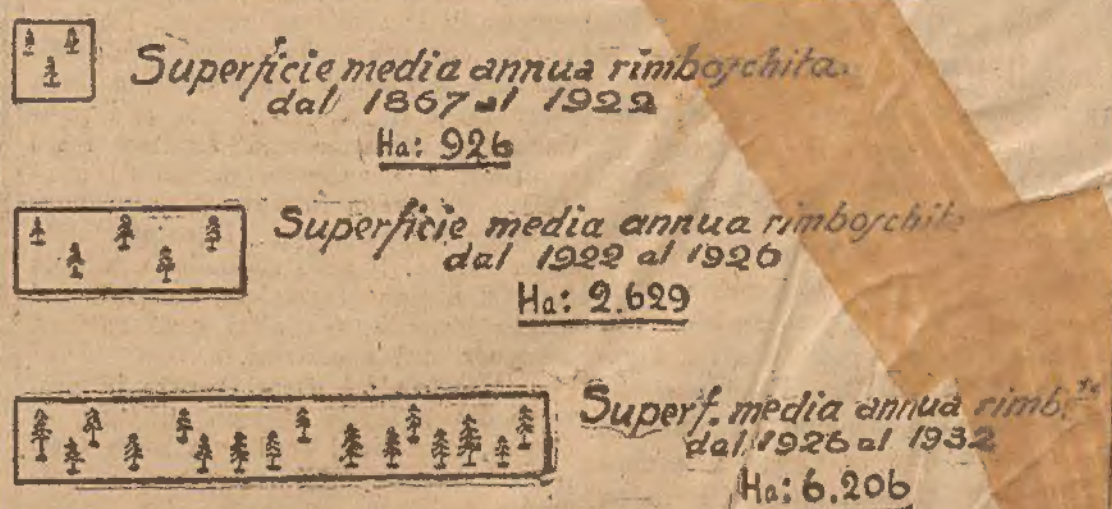 Superficie media annua rimboschita
dal 1867 al 1922
Ha: 926
Superficie media annua rimboschita
dal 1922 al 1926
Ha: 2.629
Superf. media annua rimb.ta
dal 1926 al 1932
Ha: 6.206